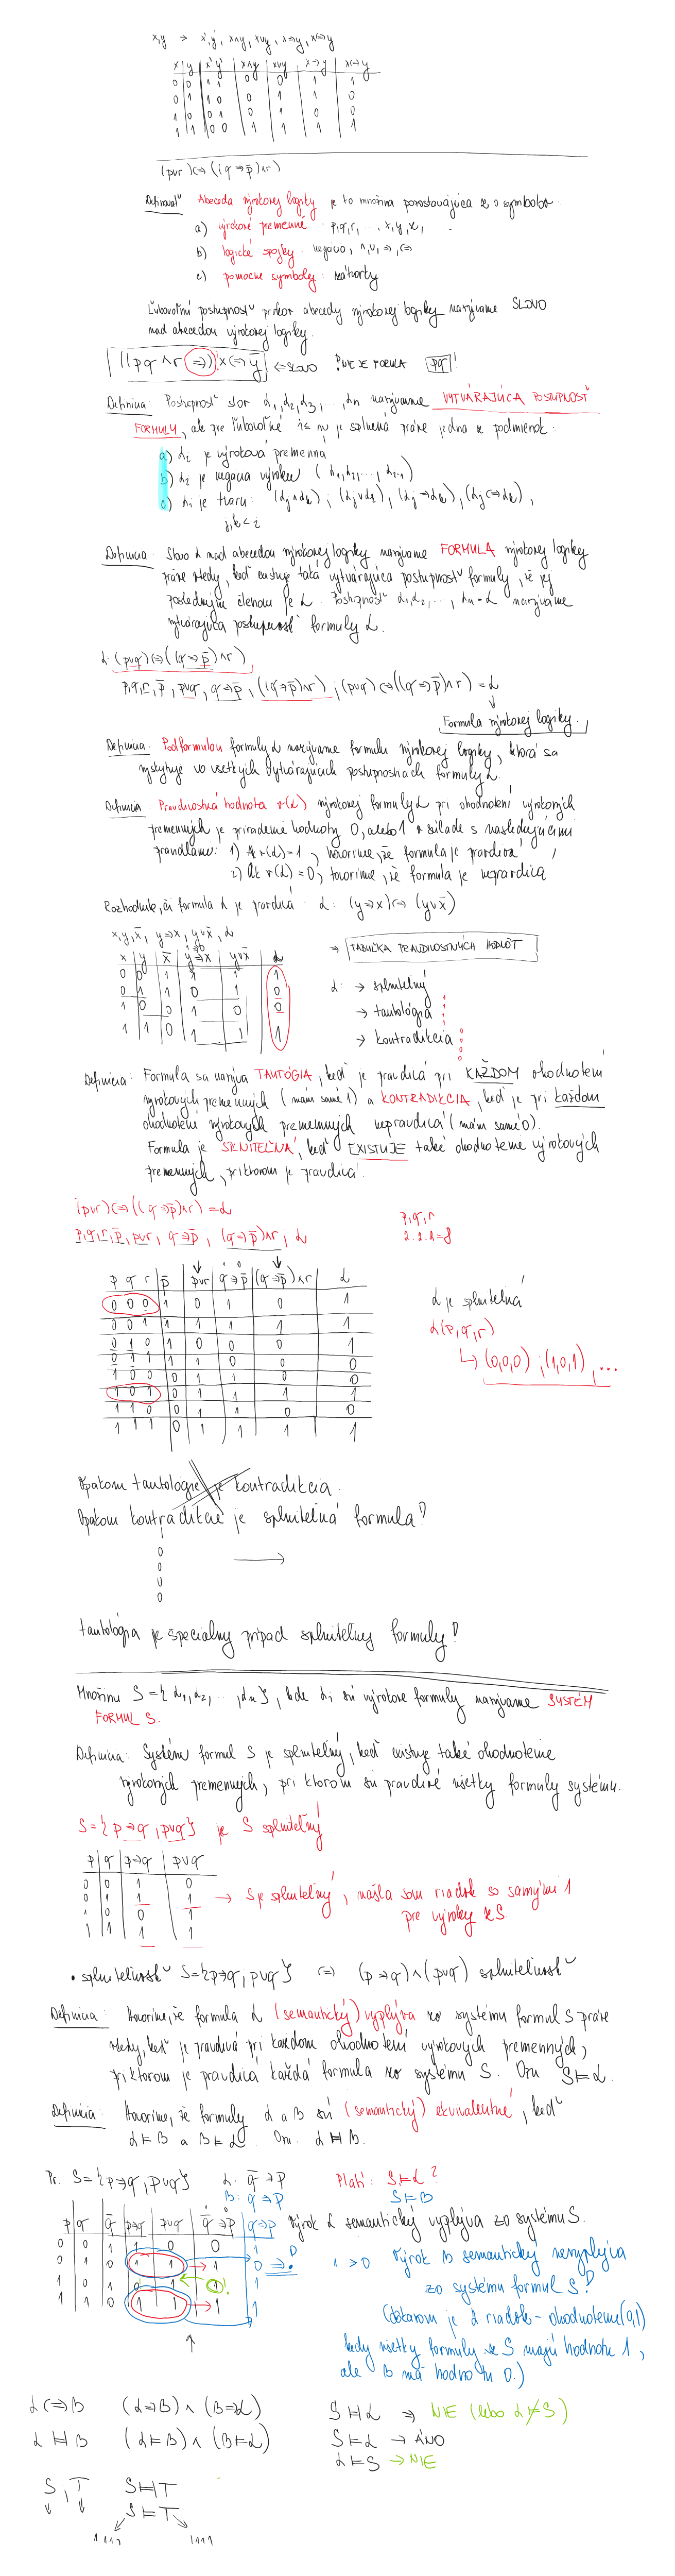 x,y → x',y', x∧y, x∨y, x⇒y, x⇔y
x y x' y' x∧y x∨y x→y x⇔y
0 0 1 1 0 0 1 1
0 1 1 0 0 1 1 0
1 0 0 1 0 1 0 0
1 1 0 0 1 1 1 1
(p∨r)⇔((q⇒p̄)∧r)
Abeceda výrokovej logiky je to množina pozostávajúca zo symbolov
a) výrokové premenné p,q,r,...,x,y,z,....
b) logické spojky: negácia, ∧,∨,⇒,⇔
c) pomocné symboly: zátvorky
Ľubovoľnú postupnosť prvkov abecedy výrokovej logiky nazývame SLOVO
nad abecedou výrokovej logiky.
((pq∧r⇒))x⇔ȳ ←SLOVO !NIE JE FORMULA pq!
Definícia: Postupnosť slov α₁,α₂,α₃,...,αn nazývame VYTVÁRAJÚCA POSTUPNOSŤ
FORMULY, ak pre ľubovoľné i≤n je splnená práve jedna z podmienok:
a) αi je výroková premenná
b) αi je negácia výroku (α₁,α₂,...,αi-1)
c) αi je tvaru: (αj∧αk), (αj∨αk), (αj→αk), (αj⇔αk),
j,k<i
Definícia: Slovo α nad abecedou výrokovej logiky nazývame FORMULA výrokovej logiky
práve vtedy, keď existuje taká vytvárajúca postupnosť formuly, že jej
posledným členom je α. Postupnosť α₁,α₂,...,αn=α nazývame
vytvárajúca postupnosť formuly α.
α: (p∨q)⇔((q⇒p̄)∧r)
p,q,r,p̄, p∨q, q⇒p̄, ((q⇒p̄)∧r), (p∨q)⇔((q⇒p̄)∧r)=α
↓
Formula výrokovej logiky.
Definícia: Podformulou formuly α nazývame formulu výrokovej logiky, ktorá sa
vyskytuje vo všetkých vytvárajúcich postupnostiach formuly α.
Definícia: Pravdivostná hodnota v(α) výrokovej formuly α pri ohodnotení výrokových
premenných je priradenie hodnoty 0, alebo 1 v súlade s nasledujúcimi
pravidlami: 1) Ak v(α)=1, hovoríme, že formula je pravdivá
2) Ak v(α)=0, hovoríme, že formula je nepravdivá
Rozhodnite, či formula α je pravdivá: α: (y⇒x)⇔(y∨x̄)
x,y,x̄, y⇒x, y∨x̄, α
→ TABUĽKA PRAVDIVOSTNÝCH HODNÔT
x y x̄ y⇒x y∨x̄ α
0 0 1 1 1 1
0 1 1 0 1 0
1 0 0 1 0 0
1 1 0 1 1 1
α: → splniteľný
→ tautológia
→ kontradikcia
Definícia: Formula sa nazýva TAUTÓGIA, keď je pravdivá pri KAŽDOM ohodnotení
výrokových premenných (mám samé 1) a KONTRADIKCIA, keď je pri každom
ohodnotení výrokových premenných nepravdivá (mám samé 0).
Formula je SPLNITEĽNÁ, keď EXISTUJE také ohodnotenie výrokových
premenných, pri ktorom je pravdivá.
(p∨r)⇔((q⇒p̄)∧r)=α
p,q,r,p̄, p∨r, q⇒p̄, (q⇒p̄)∧r, α
p,q,r
2.2.2=8
p q r p̄ p∨r q⇒p̄ (q⇒p̄)∧r α
0 0 0 1 0 1 0 1
0 0 1 1 1 1 1 1
0 1 0 1 0 0 0 1
0 1 1 1 1 0 0 0
1 0 0 0 1 1 0 0
1 0 1 0 1 1 1 1
1 1 0 0 1 1 0 0
1 1 1 0 1 1 1 1
α je splniteľná
α(p,q,r)
↳ (0,0,0), (1,0,1), ...
Opakom tautológie je kontradikcia.
Opakom kontradikcie je splniteľná formula!
0
0
0
0
→
tautológia je špeciálny prípad splniteľnej formuly!
Množinu S={α₁,α₂,...,αn}, kde αi sú výrokové formuly nazývame SYSTÉM
FORMÚL S.
Definícia: Systém formúl S je splniteľný, keď existuje také ohodnotenie
výrokových premenných, pri ktorom sú pravdivé všetky formuly systému.
S={p⇒q, p∨q} je S splniteľný
p q p⇒q p∨q
0 0 1 0
0 1 1 1
1 0 0 1
1 1 1 1
→ S je splniteľný, našla som riadok so samými 1
pre výroky z S.
• splniteľnosť S={p⇒q, p∨q} ⇔ (p⇒q)∧(p∨q) splniteľnosť
Definícia: Hovoríme, že formula α (semantický) vyplýva zo systému formúl S práve
vtedy, keď je pravdivá pri každom ohodnotení výrokových premenných,
pri ktorom je pravdivá každá formula zo systému S. Ozn. S⊨α.
Definícia: Hovoríme, že formuly α a B sú (semantický) ekvivalentné, keď
α⊨B a B⊨α. Ozn. α⊨B.
Pr. S={p⇒q, p∨q} α: q̄⇒p Platí: S⊨α?
B: q⇒p S⊨B
p q q̄ p⇒q p∨q q̄⇒p q⇒p
0 0 1 1 0 0 1
0 1 0 1 1 → 1 0 ⇒!
1 0 1 0 1 1! 1
1 1 0 1 1 → 1 1
Výrok α semantický vyplýva zo systému S.
1→0 Výrok B semantický nevyplýva
zo systému formúl S!
(dôkazom je 2 riadok - ohodnotenie (0,1)
kedy všetky formuly z S majú hodnotu 1,
ale B má hodnotu 0.)
α⇔B (α⇒B)∧(B⇒α)
α⊨B (α⊨B)∧(B⊨α)
S⊨α ⇒ NIE (lebo α⊭S)
S⊨α → ÁNO
α⊨S → NIE
S, T S⊨T
S⊨T
1111 1111